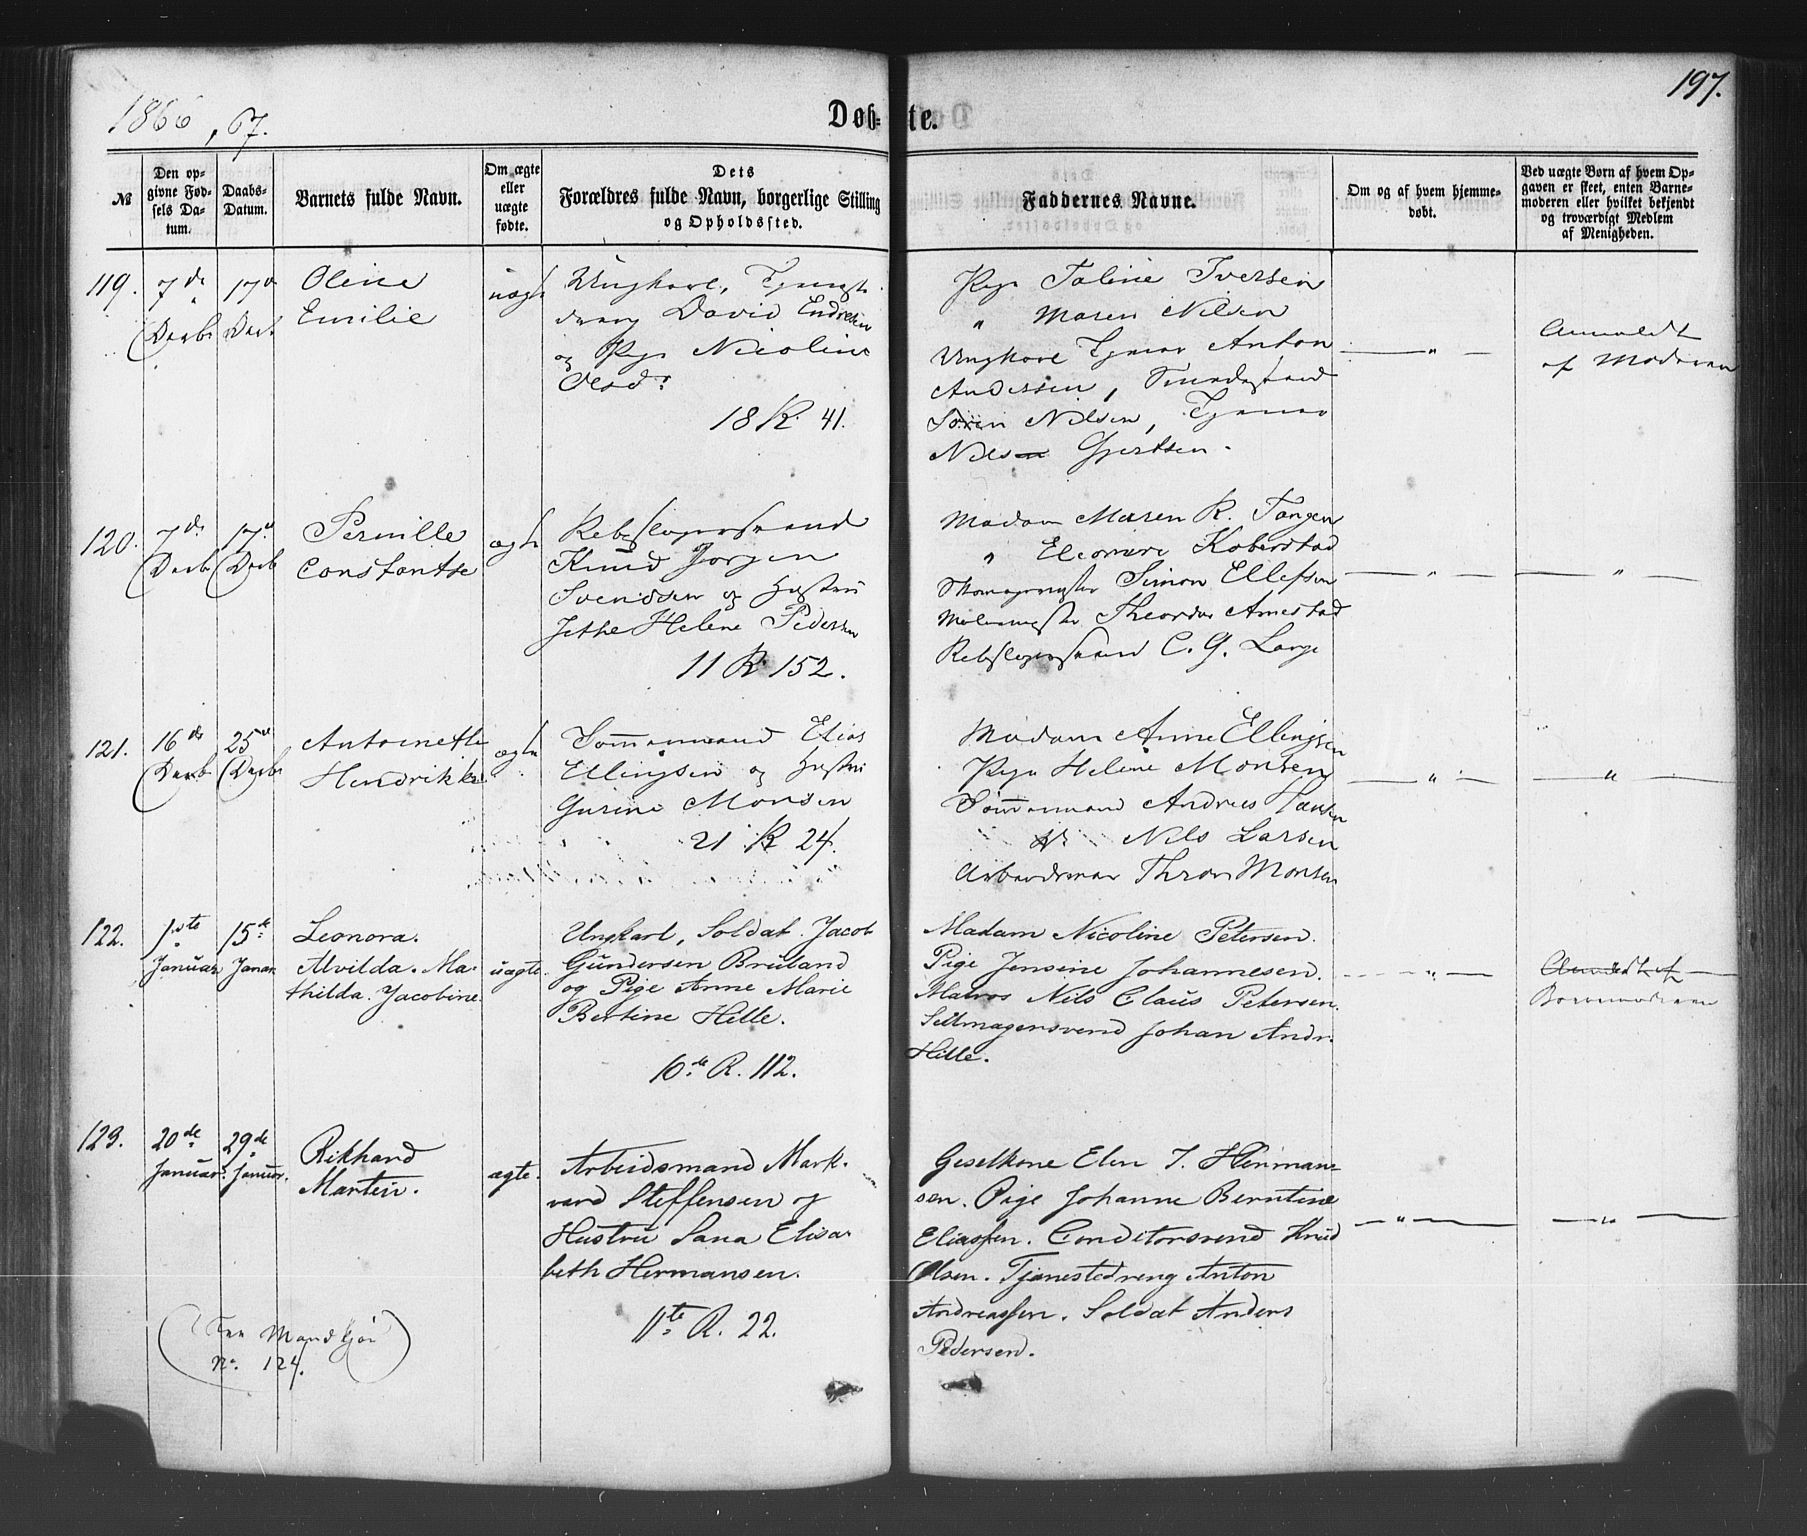 197.
1866, 67.
Døb- te.
№
Den op-
givne Fød-
sels Da-
tum.
Daabs-
Datum.
Barnets fulde Navn.
Om ægte
eller
uægte
fødte.
Dets
Forældres fulde Navn, borgerlige Stilling
og Opholdssted.
Faddernes Navne.
Om og af hvem hjemme-
døbt.
Ved uægte Børn af hvem Op-
gaven er skeet, enten Barne-
moderen eller hvilket bekjendt
og troværdigt Medlem
af Menigheden.
119.
7de
Decbr
17de
Decbr
Oline
Emilie
uægte
Ungkarl, Tjenest-
dreng David Endresen
og Pige Nicoline
Olsd:
18 R. 41.
Pige Taline Iversen
" Maren Nilsen
Ungkarl Tjener Anton
Andersen,
Søren Nilsen, Tjener
Nils Gjertsen.
"
Anmeldt
af Moderen
120.
7de
Decbr
17de
Decbr
Pernille
Constantse
ægte
Rebslagersvend
Knud Jørgen
Svendsen og Hustru
Jethe Helene Pedersen
11 R. 152.
Madam Maren R. Tangen
" Eleonore Koberstad
Skomagermester Simon Ellefsen
Malermester Theodor Arnestad
Rebslagersvend C. G. Lange
"
"
121.
16de
Decbr
25de
Decbr
Antoinette
Hendrikke
ægte
Tømmermand Elias
Ellingsen og Hustru
Gurine Monsen
21 R 24.
Madam Anne Ellingsen
Pige Helene Monsen
Tømmermand Andreas Hansen
Nils Larsen
Arbeidsmand Thron Monsen
"
"
122.
1ste
Januar
15de
Januar
Leonora.
Alvilda. Ma-
thilda. Jacobine.
uægte.
Ungkarl, Soldat. Jacob
Gundersen Bruland
og Pige Anne Marie
Bertine Hille.
16de R. 112.
Madam Nicoline Petersen.
Pige Jensine Johannesen.
Matros Nils Claus Petersen.
Seilmagersvend Johan Andr.
Hille.
"
Anmeldt af
Barnemoderen
123.
20de
Januar.
29de
Januar.
Rikhard
Martin.
ægte.
Arbeidsmand Mark-
vard Steffensen og
Hustru Sara Elisa-
beth Hermansen.
11te R. 22.
Geselkone Elen T. Herman-
sen. Pige Johanne Berntine
Eliassen. Conditorsvend Knud
Olsen. Tjenestedreng Anton
Andreassen. Soldat Anders
Pedersen.
"
"
(See Mandkjøn
No. 124.)